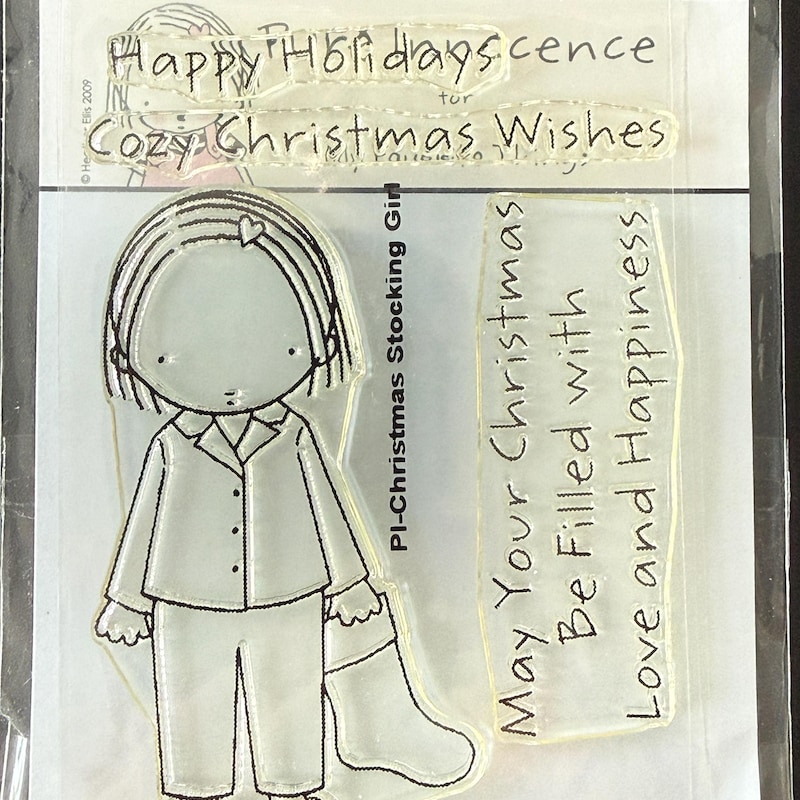 Happy Holidays
Pure Innocence
for
Cozy Christmas Wishes
© Heather Ellis 2009
PI-Christmas Stocking Girl
May Your Christmas
Be Filled with
Love and Happiness